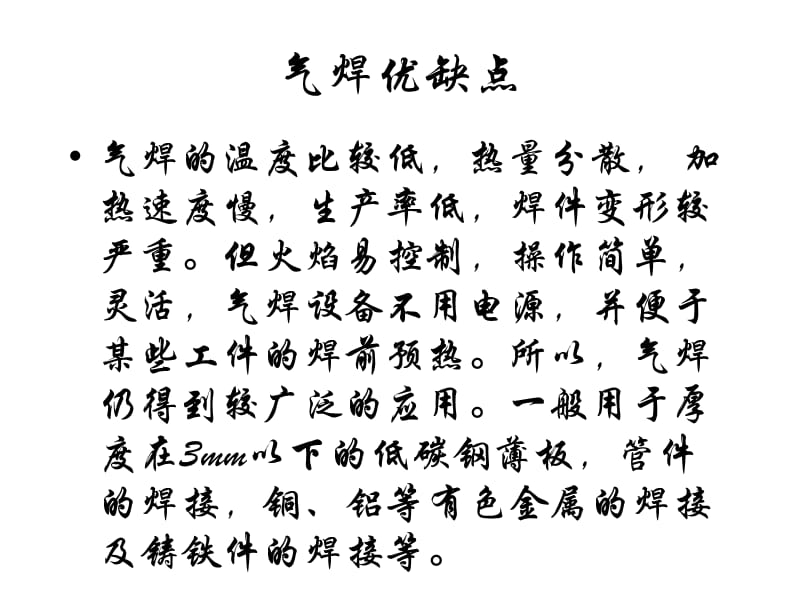 气焊优缺点
• 气焊的温度比较低，热量分散，加
热速度慢，生产率低，焊件变形较
严重。但火焰易控制，操作简单，
灵活，气焊设备不用电源，并便于
某些工件的焊前预热。所以，气焊
仍得到较广泛的应用。一般用于厚
度在3mm以下的低碳钢薄板，管件
的焊接，铜、铝等有色金属的焊接
及铸铁件的焊接等。